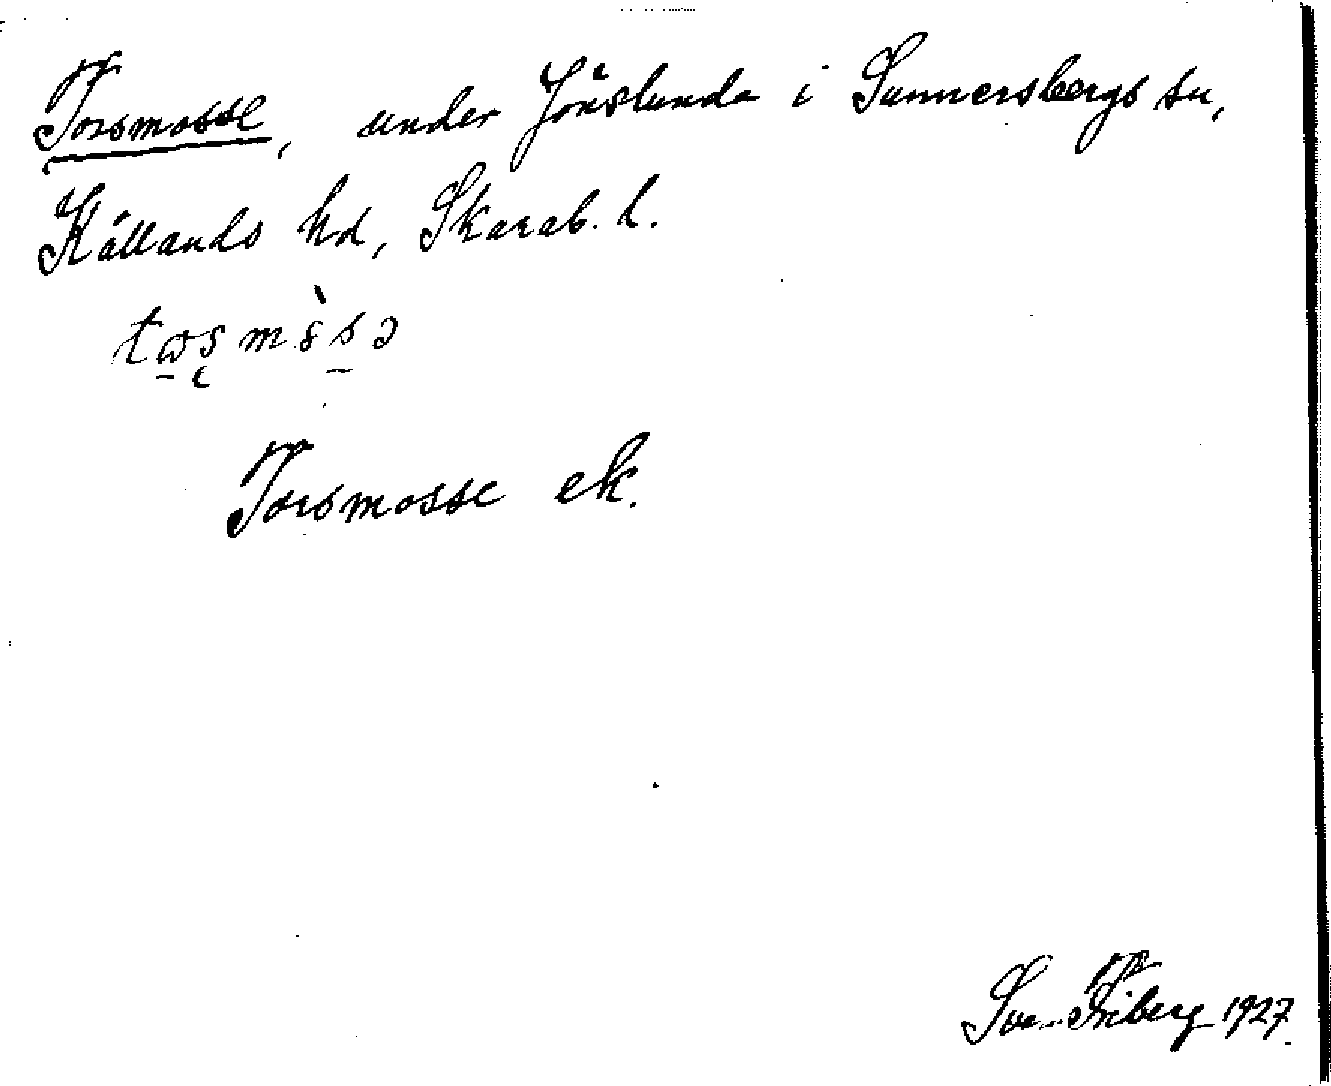 Torsmosse, under Jönslunda i Sunnersbergs sn,
Kållands hd, Skarab. l.
Torsmosse ek.
Sven Friberg 1927.